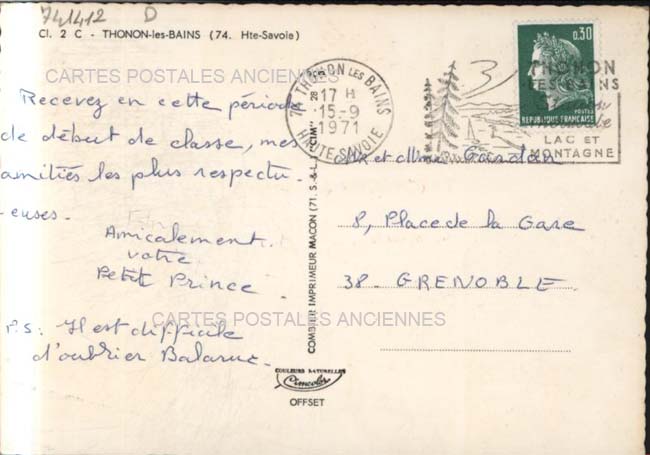 741412 D
Cl. 2 C - THONON-les-BAINS (74. Hte-Savoie)
CARTES POSTALES ANCIENNES
Recevez en cette période
de début de classe, mes
amitiés les plus respectu-
euses.
Amicalement.
votre
Petit Prince.
P.S: Il est difficile
d'oublier Balaruc.
CARTES POSTALES ANCIENNES
COMBIER IMPRIMEUR MACON (71. S.-&-L.) "CIM"
COULEURS NATURELLES
Cimcolor
OFFSET
74 THONON LES BAINS
17 H
15-9
1971
HAUTE SAVOIE
THONON
LES BAINS
LAC ET
MONTAGNE
0,30
POSTES
REPUBLIQUE FRANÇAISE
Mr et Mme
8, Place de la Gare
38. GRENOBLE.